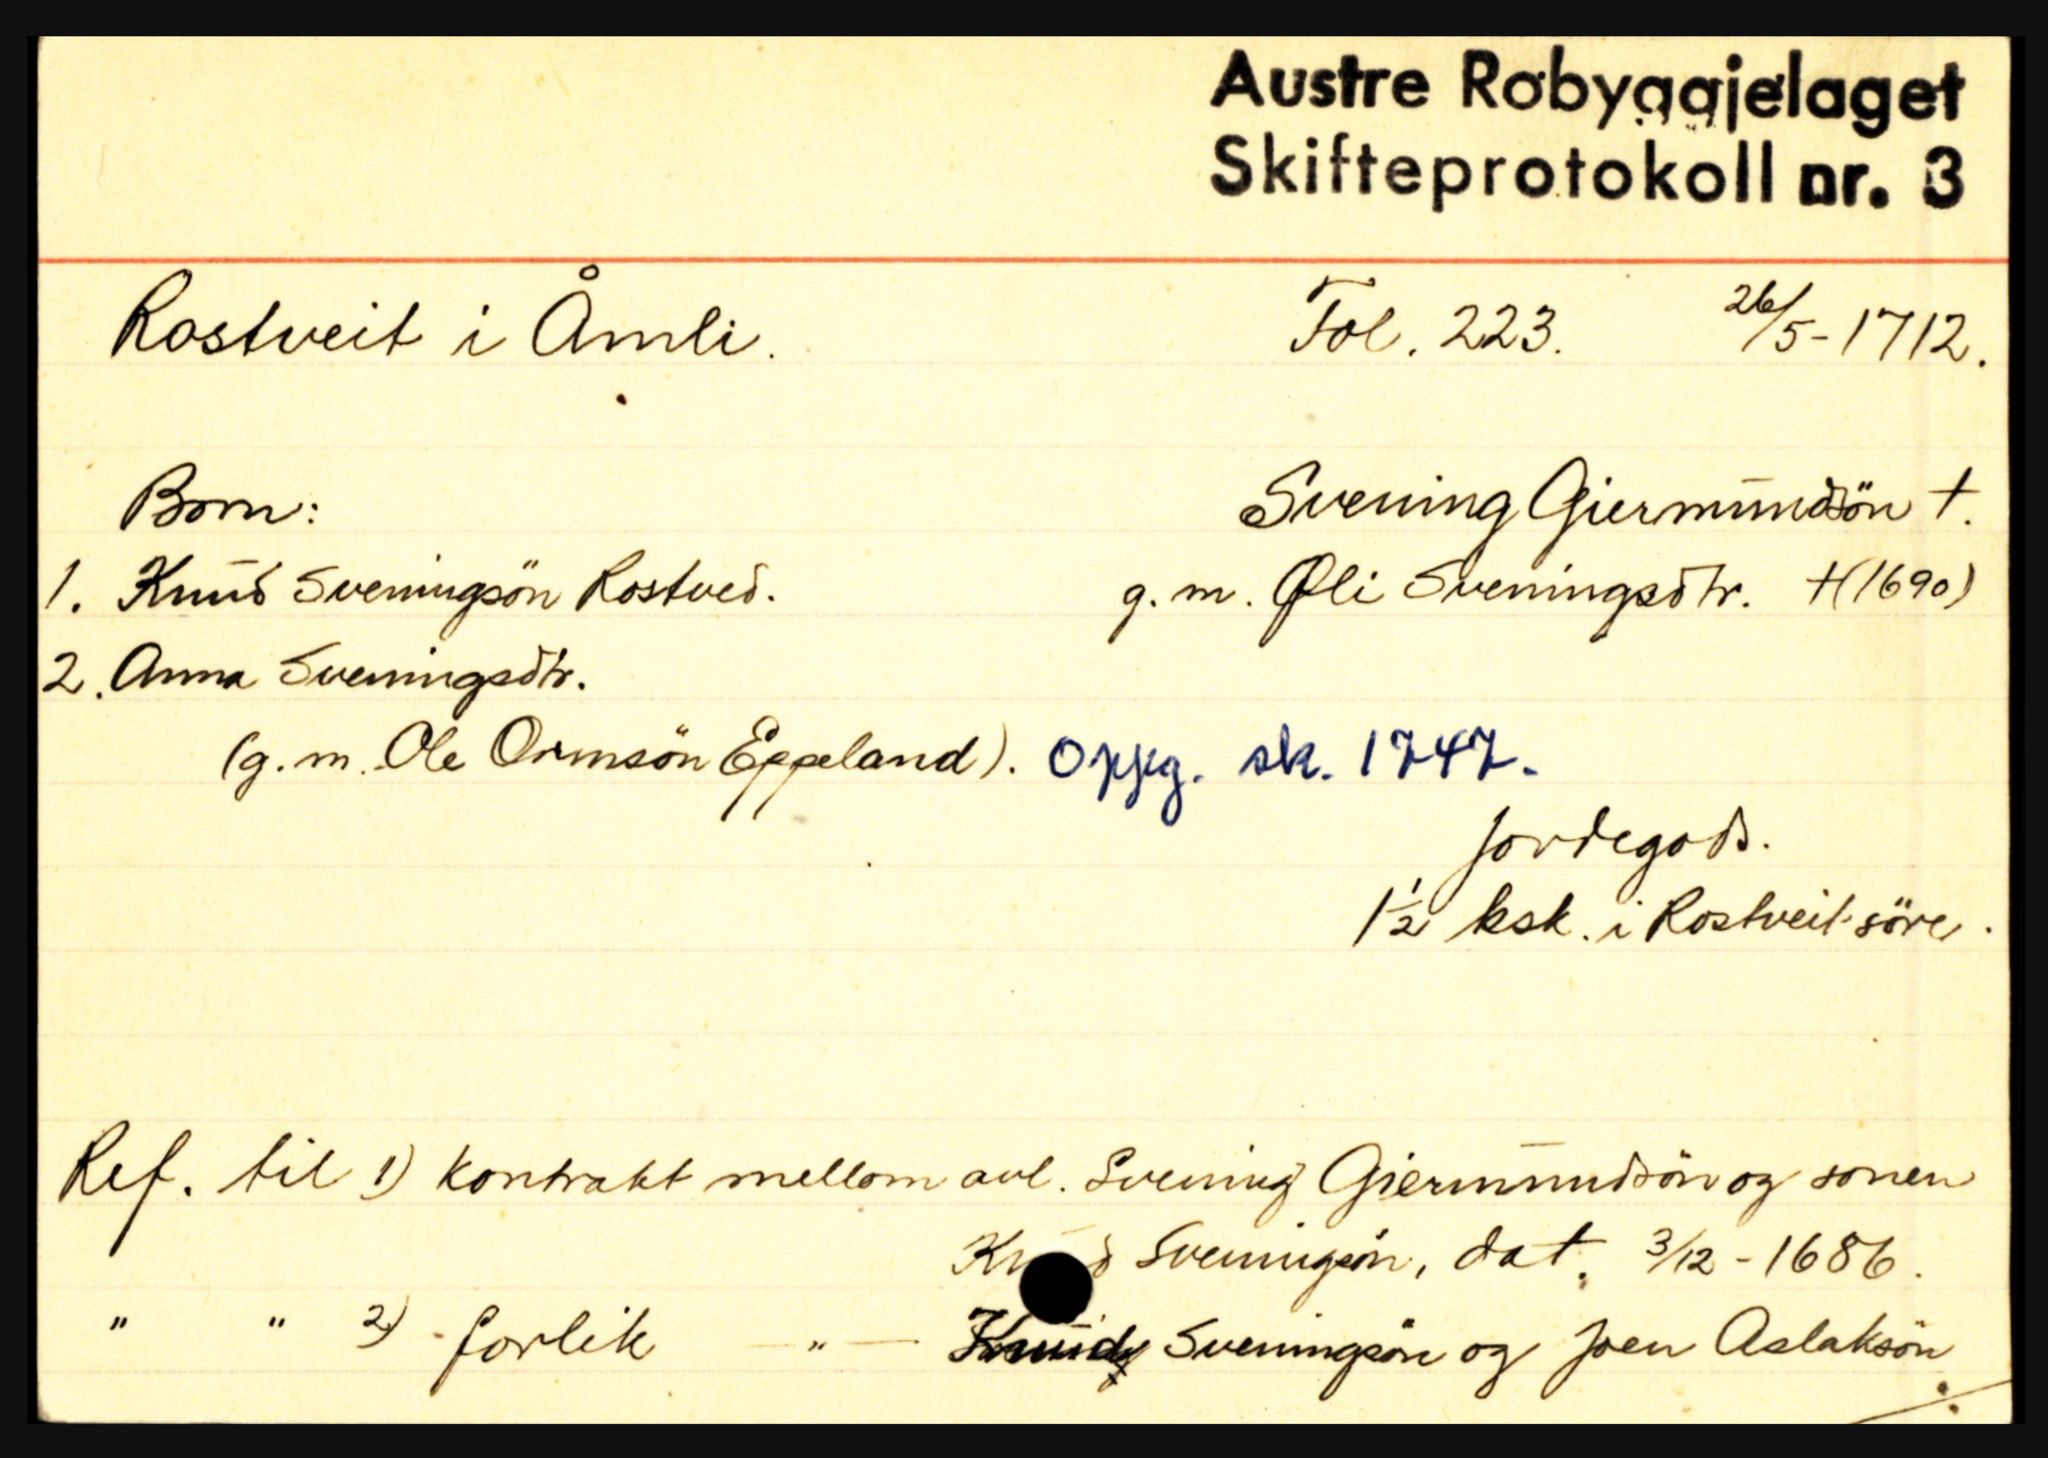 Austre Robyggjelaget
Skifteprotokoll nr. 3
Rostveit i Åmli. Fol. 223. 26/5-1712.
Born: Svening Giermundsön †.
1. Knud Sveningsön Rostved. g.m. Øli Sveningsdtr. †(1690)
2. Anna Sveningsdtr.
(g.m. Ole Ormsön Eppeland). Oppg. sk. 1747.
Jordegods.
1½ ksk. i Rostveit söre.
Ref. til 1) kontrakt mellom avl. Svening Giermundsön og sonen
Knud Sveningsön, dat. 3/12-1686.
" " 2) forlik — " — Knud Sveningsön og Joen Aslaksön